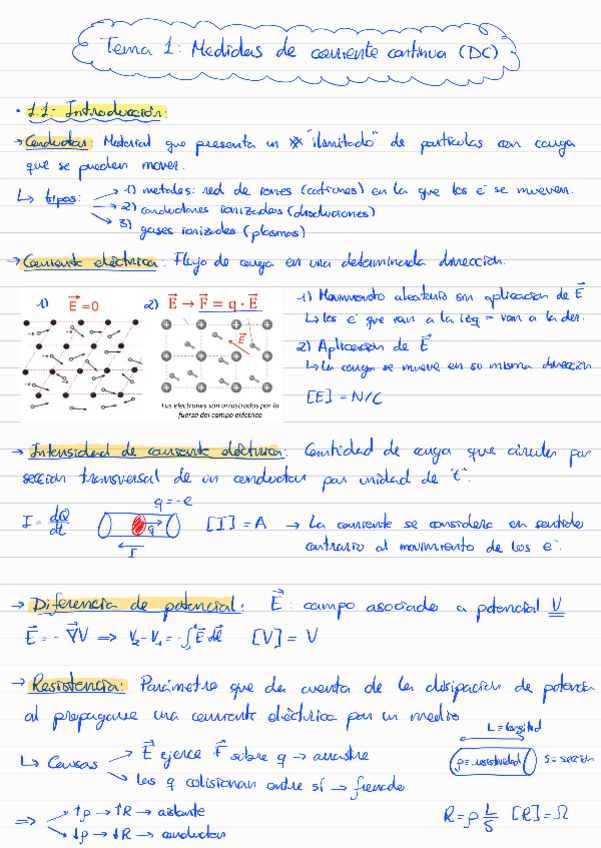 Tema 1: Medidas de corriente continua (DC)
• 1.1: Introducción:
→ Conductor: Material que presenta un nº "ilimitado" de partículas con carga
que se pueden mover.
↳ tipos: → 1) metales: red de iones (cationes) en la que los e⁻ se mueven.
→ 2) conductores ionizados (disoluciones)
→ 3) gases ionizados (plasmas)
→ Corriente eléctrica: Flujo de carga en una determinada dirección.
1) E⃗ = 0 2) E⃗ → F⃗ = q · E⃗
E⃗
Los electrones son arrastrados por la
fuerza del campo eléctrico
1) Movimiento aleatorio sin aplicación de E⃗
↳ los e⁻ que van a la izq = van a la der.
2) Aplicación de E⃗
↳ La carga se mueve en su misma dirección
[E] = N/C
→ Intensidad de corriente eléctrica: Cantidad de carga que circula por
sección transversal de un conductor por unidad de "t".
q = -e
I = dQ/dt q I [I] = A → La corriente se considera en sentido
contrario al movimiento de los e⁻.
→ Diferencia de potencial: E⃗: campo asociado a potencial V
E⃗ = - ∇⃗V ⇒ V₂ - V₁ = -∫₁² E⃗ dl⃗ [V] = V
→ Resistencia: Parámetro que da cuenta de la disipación de potencia
al propagarse una corriente eléctrica por un medio
L = longitud
↳ Causas → E⃗ ejerce F⃗ sobre q → arrastre
→ las q colisionan entre sí → frenado
ρ = resistividad S = sección
⇒ ↑ρ → ↑R → aislante
↓ρ → ↓R → conductor
R = ρ L/S [R] = Ω